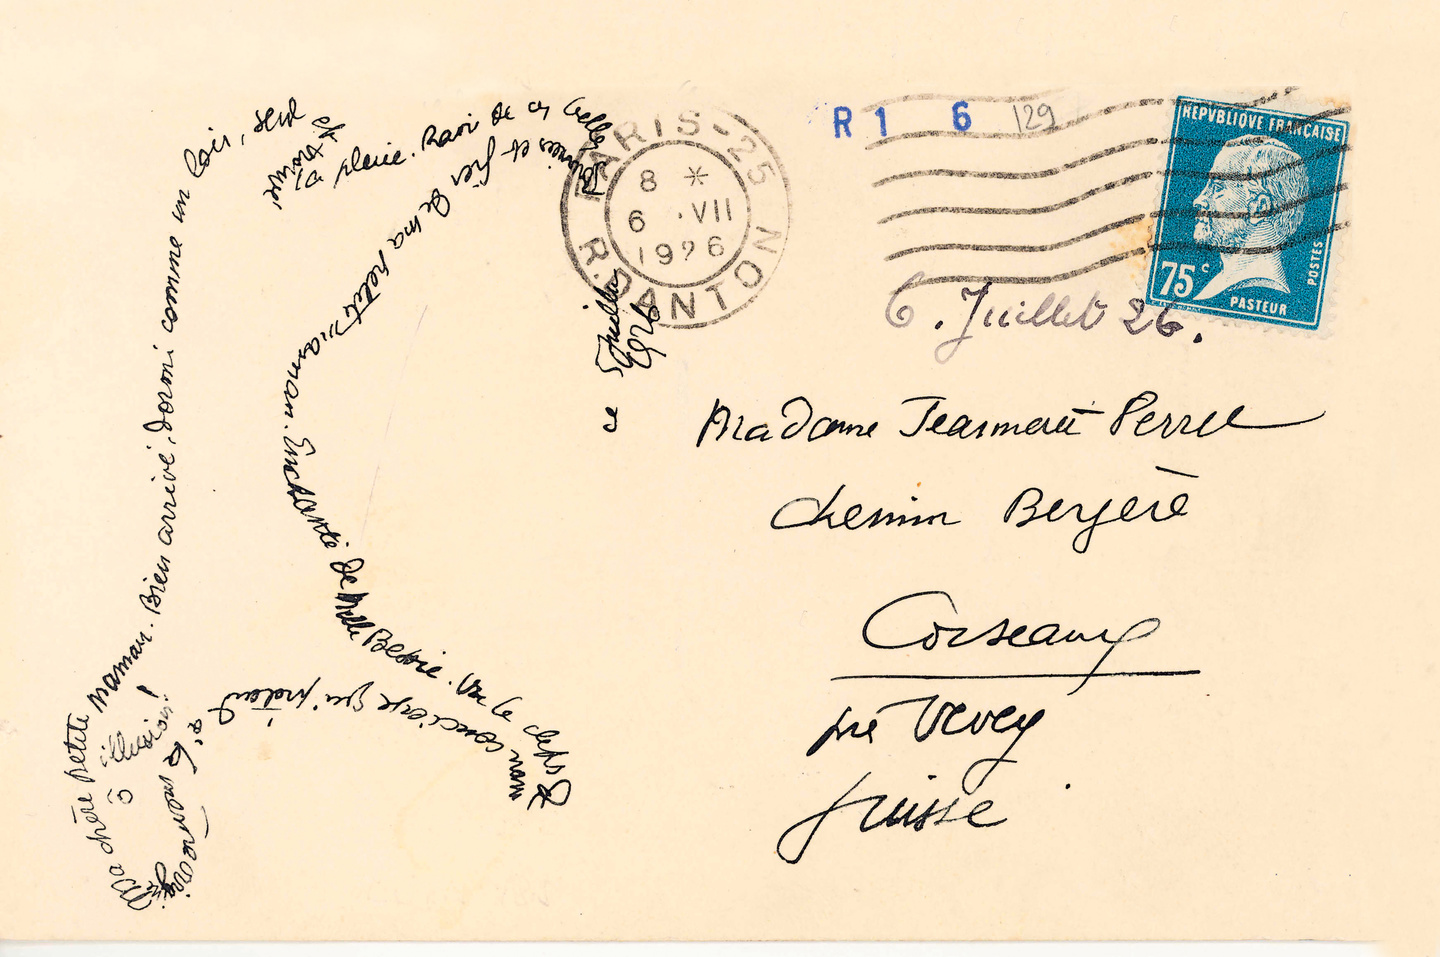 Ma chère petite maman. Bien arrivé, dormi comme un loir, seul
la pluie. Ravi de ces belles
et fier de ma petite maman. Enchanté de Mlle Bessie. Vu le
mon concierge qui prétend
vous
ô illusion!
ce 5 Juillet
1926
PARIS-25
R. DANTON
8 *
6 · VII
1926
R 1 6
129
REPVBLIQVE FRANÇAISE
POSTES
75c
PASTEUR
6. Juillet 26.
Madame Jeanneret Perret
Chemin Bergère
Corseaux
près Vevey
Suisse